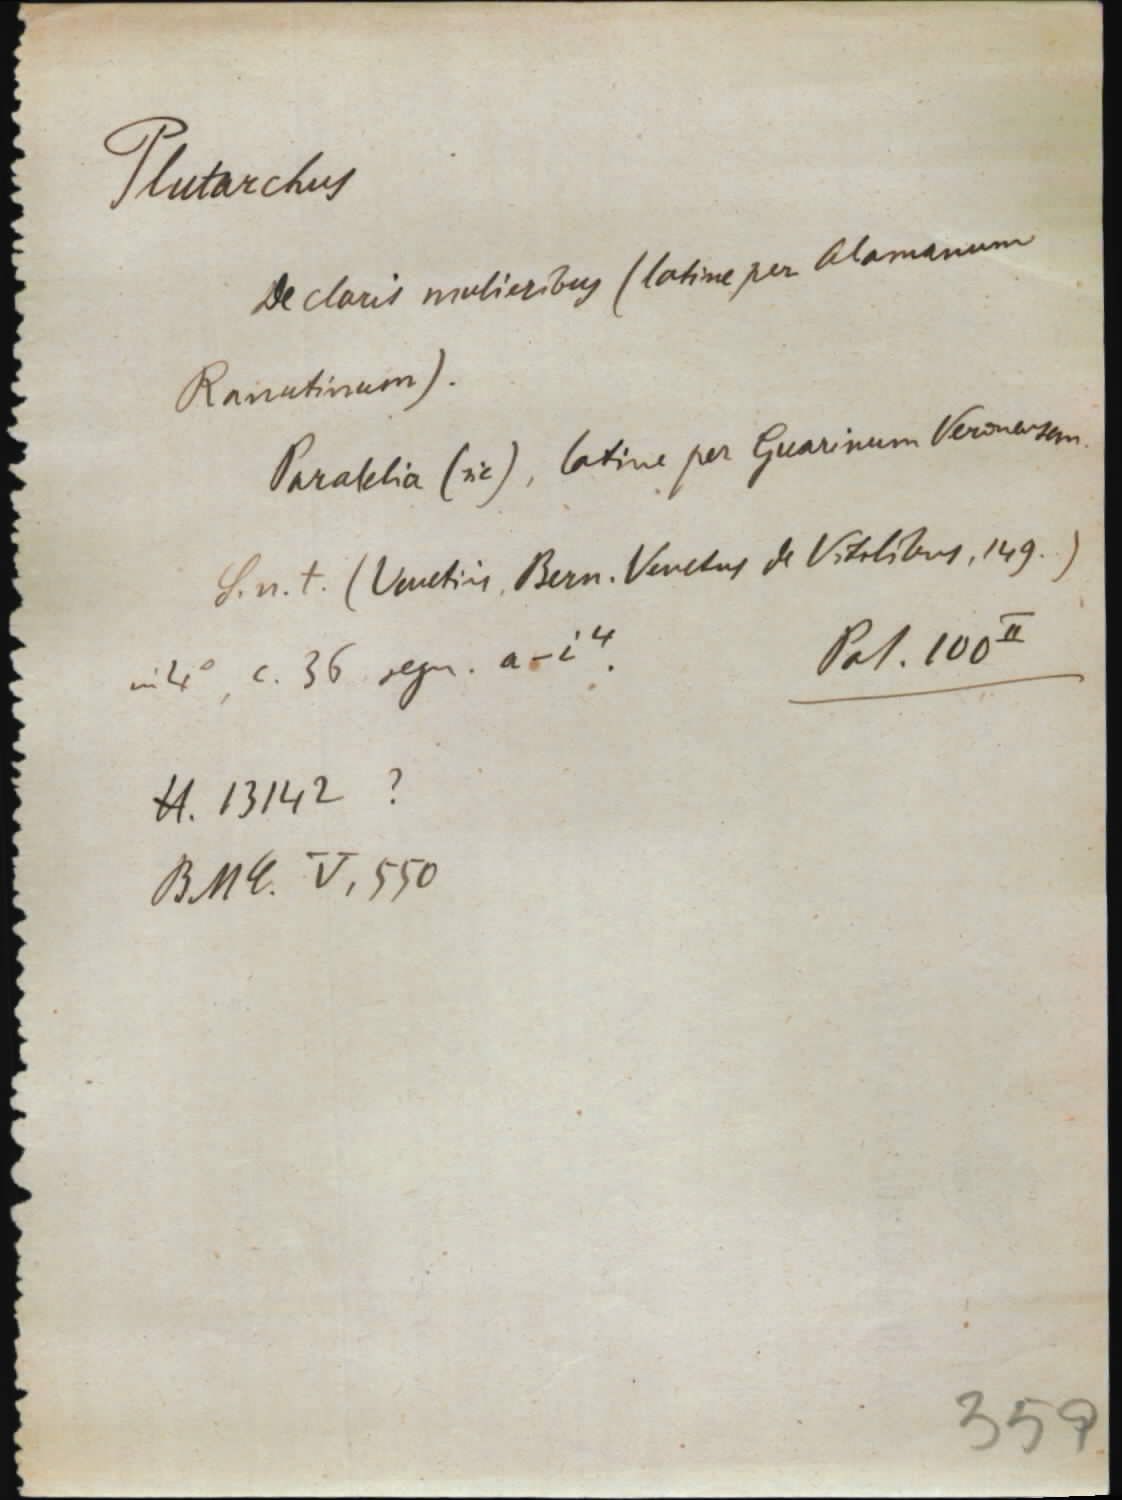 Plutarchus
De claris mulieribus (latine per Alamanum
Ranutinum).
Parallelia (sic), latine per Guarinum Veronensem.
S.n.t. (Venetiis, Bern. Venetus de Vitalibus, 149..)
in 4°, c. 36 segn. a-i⁴.
Pal. 100 II
H. 13142 ?
BMC. V, 550
359